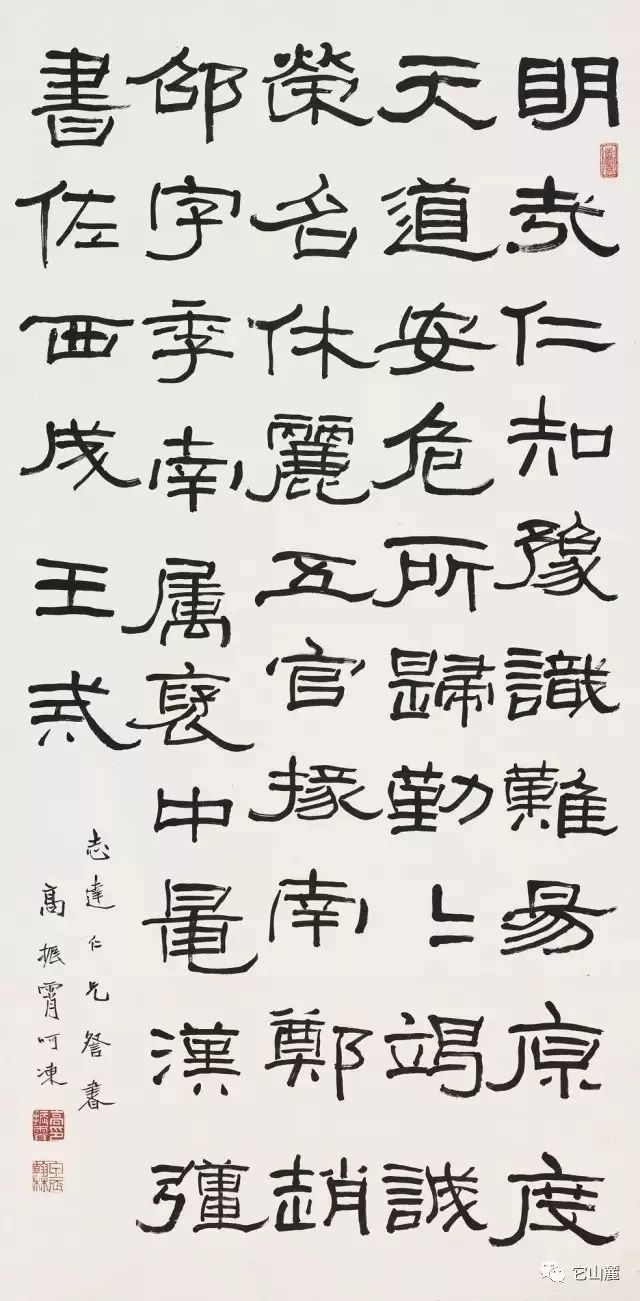 明哉仁知豫識難易原度
天道安危所歸勤〻竭誠
榮名休麗五官掾南鄭趙
邵字季南属褒中鼂漢彊
書佐西成王戒
志達仁兄詧書
高振霄呵凍
它山麓